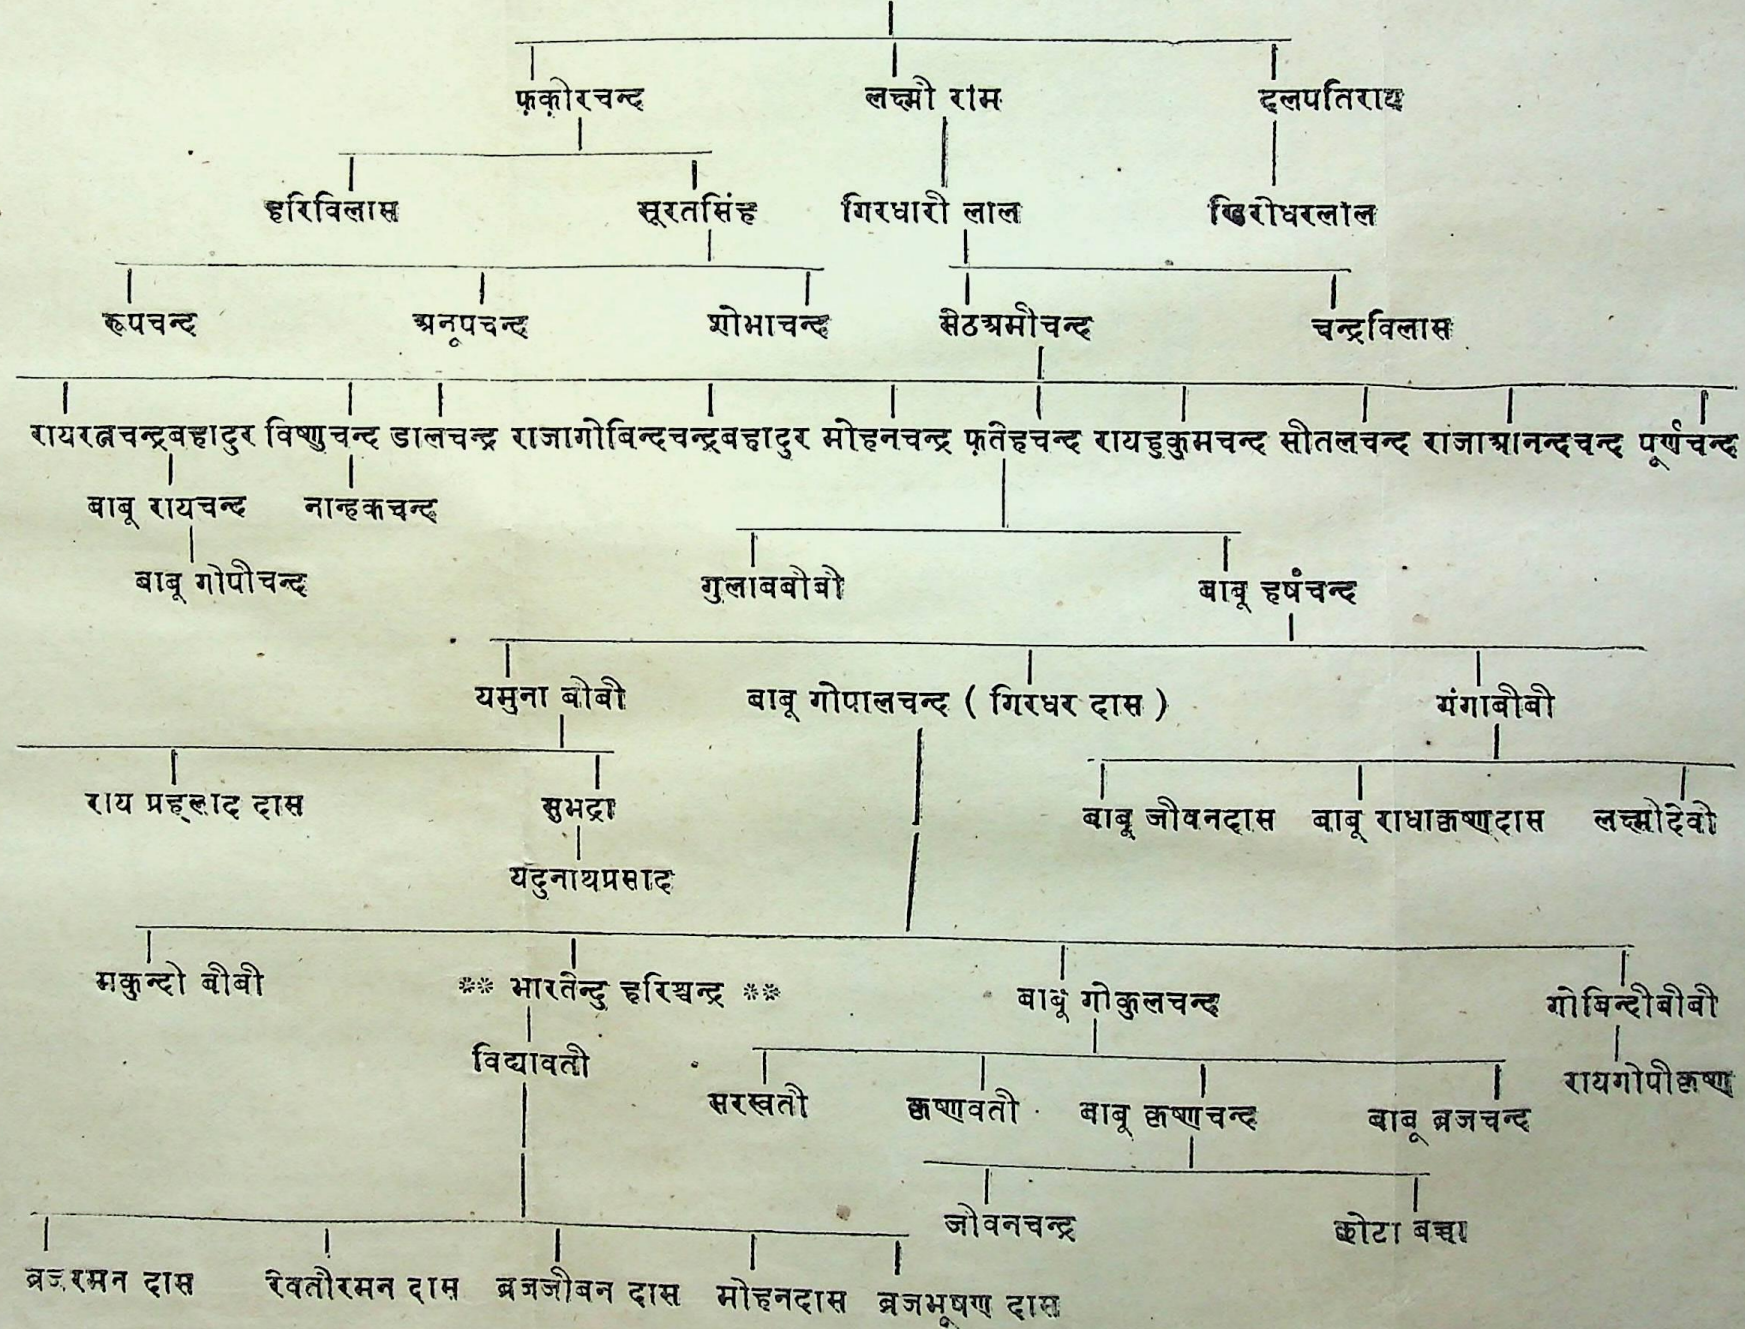 फ़क़ीरचन्द लक्ष्मी राम दलपतिराय
हरिविलास सूरतसिंह गिरधारी लाल खिरोधरलाल
रूपचन्द अनूपचन्द शोभाचन्द सेठअमीचन्द चन्द्रविलास
रायरत्नचन्द्रबहादुर विष्णुचन्द डालचन्द्र राजागोबिन्दचन्द्रबहादुर मोहनचन्द्र फ़तेहचन्द रायहुकुमचन्द सीतलचन्द राजाआनन्दचन्द पूर्णचन्द
बाबू रायचन्द नान्हकचन्द
बाबू गोपीचन्द गुलाबबीबी बाबू हर्षचन्द
यमुना बीबी बाबू गोपालचन्द ( गिरधर दास ) गंगाबीबी
राय प्रह्लाद दास सुभद्रा बाबू जीवनदास बाबू राधाकृष्णदास लक्ष्मीदेवी
यदुनाथप्रसाद
मकुन्दी बीबी ** भारतेन्दु हरिश्चन्द्र ** बाबू गोकुलचन्द गोबिन्दीबीबी
विद्यावती सरस्वती कृष्णवती बाबू कृष्णचन्द बाबू ब्रजचन्द रायगोपीकृष्ण
जीवनचन्द्र छोटा बच्चा
ब्रजरमन दास रेवतीरमन दास ब्रजजीबन दास मोहनदास ब्रजभूषण दास